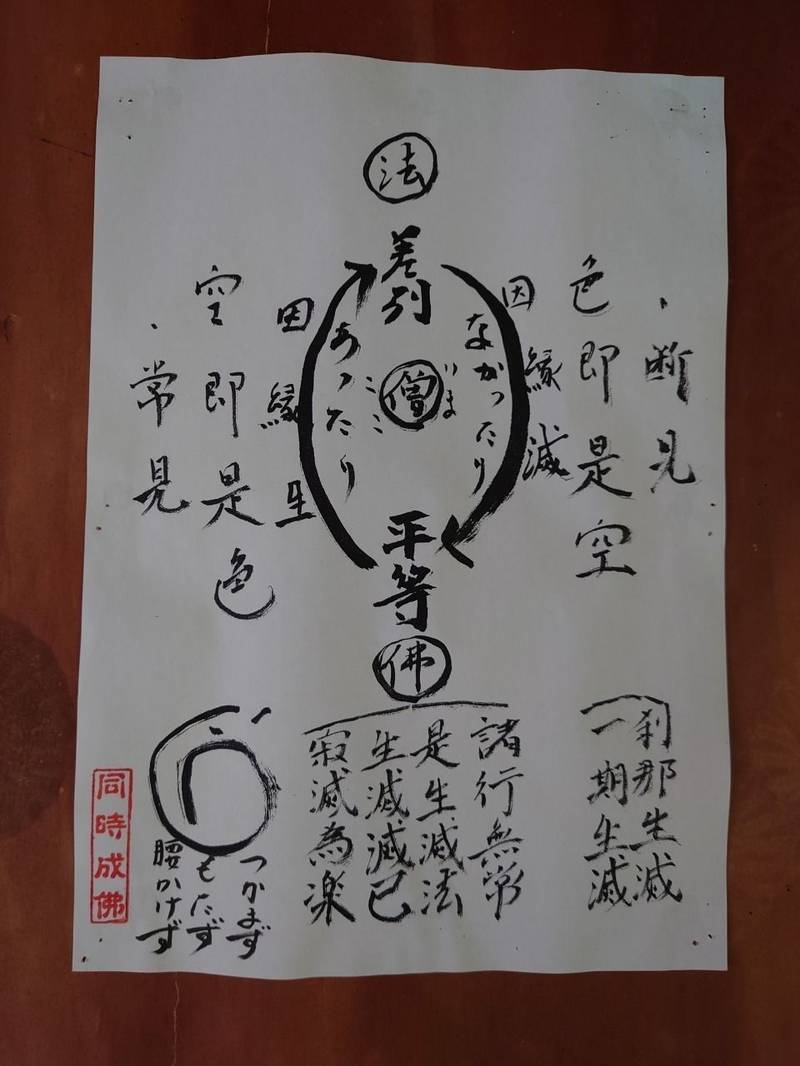 法
差別
僧
いま
ここ
なかったり
あったり
平等
佛
・断見
色即是空
因縁滅
因縁生
空即是色
・常見
刹那生滅
一期生滅
諸行無常
是生滅法
生滅滅已
寂滅為楽
つかまず
もたず
腰かけず
同時成佛